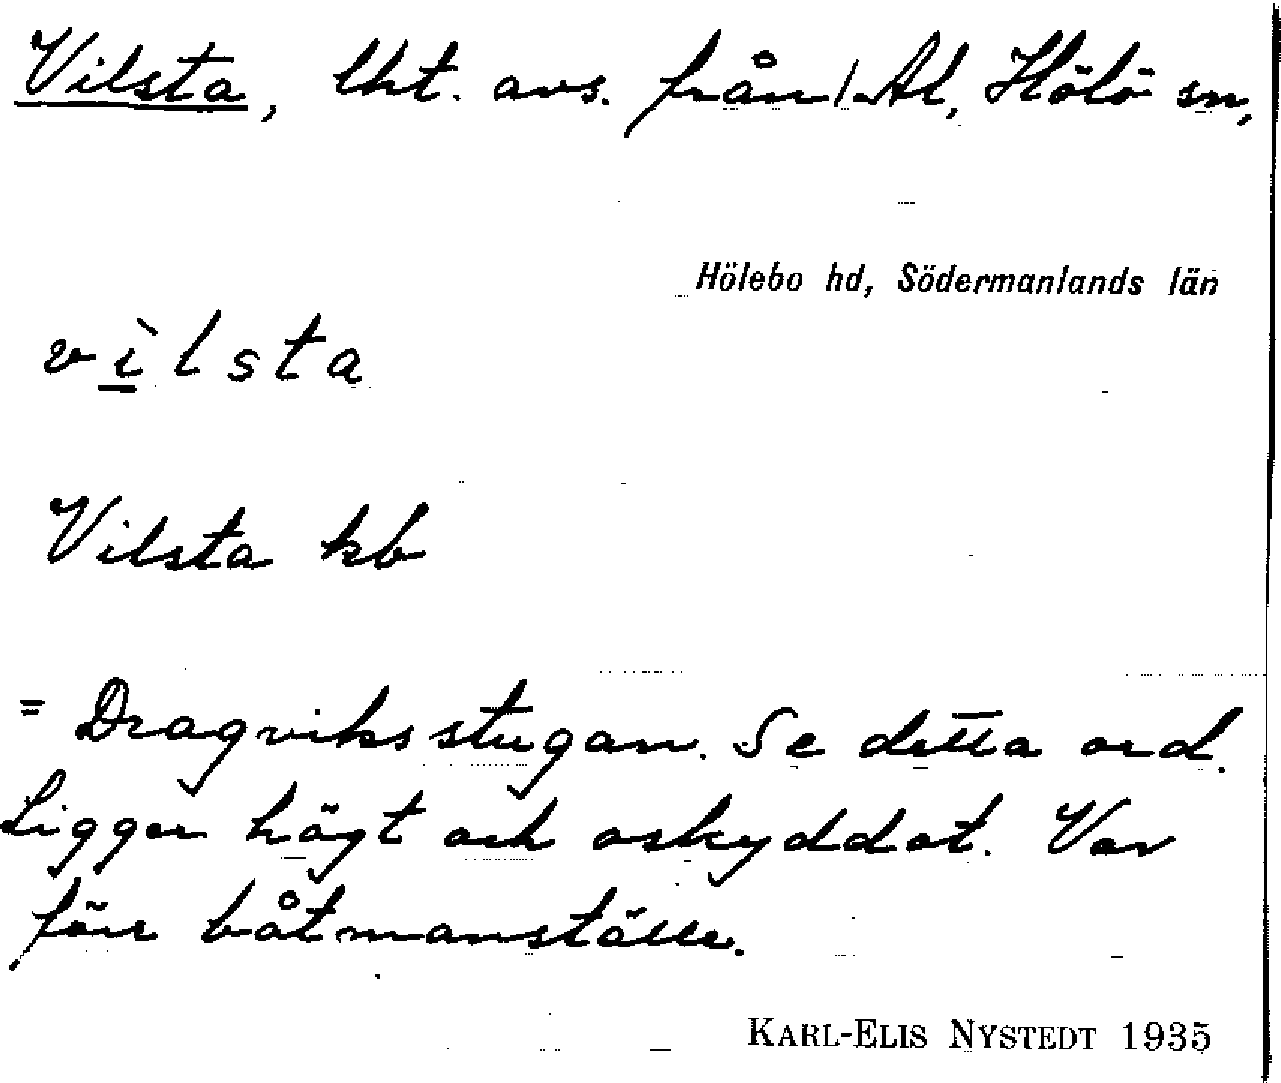 Vilsta, lht. avs. från 1. Al, Hölö sn,
Hölebo hd, Södermanlands län
vìlsta
Vilsta kb
= Dragviksstugan. Se detta ord.
Ligger högt och oskyddat. Var
förr båtmanställe.
KARL-ELIS NYSTEDT 1935